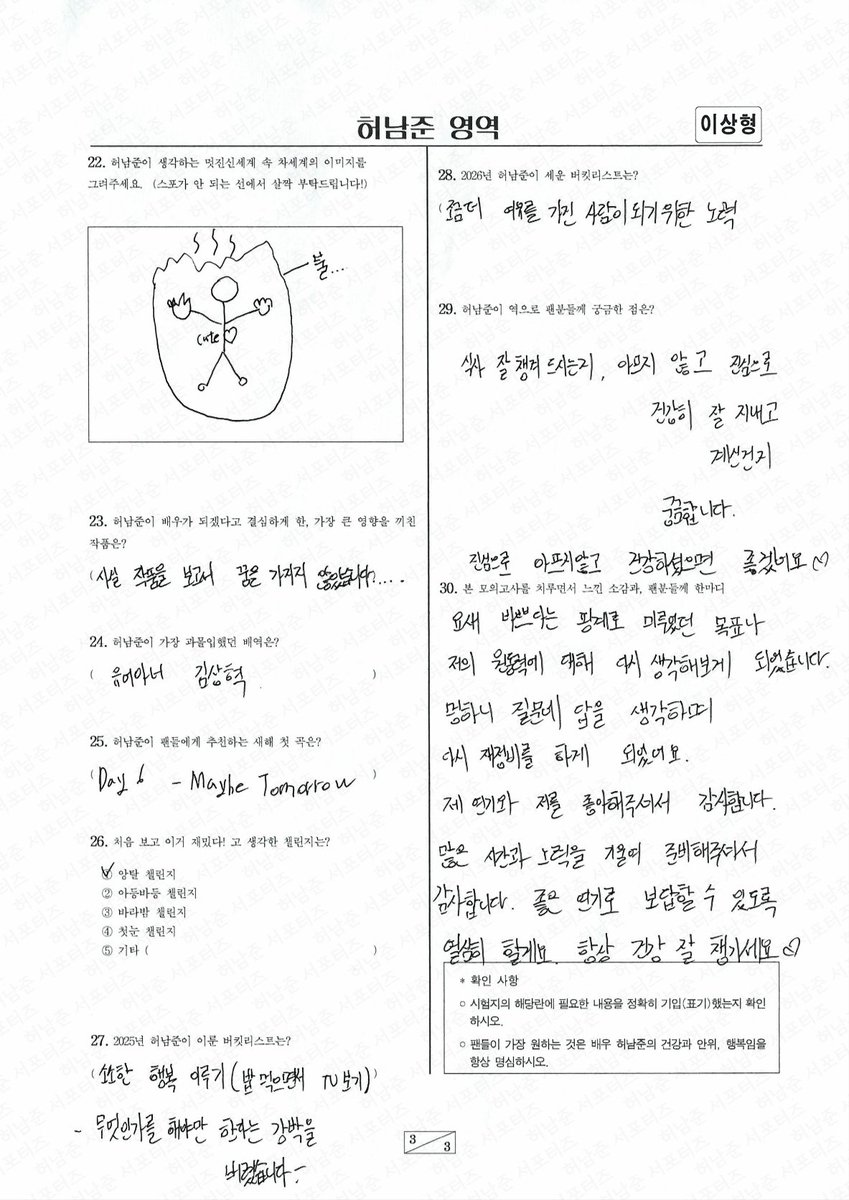 허남준 영역
이상형
22. 허남준이 생각하는 멋진신세계 속 차세계의 이미지를
그려주세요. (스포가 안 되는 선에서 살짝 부탁드립니다!)
불...
cute♡
23. 허남준이 배우가 되겠다고 결심하게 한, 가장 큰 영향을 끼친
작품은?
(사실 작품을 보고서 꿈을 가지지 않았습니다....
24. 허남준이 가장 과몰입했던 배역은?
( 유어아너 김상혁 )
25. 허남준이 팬들에게 추천하는 새해 첫 곡은?
(Day 6 - Maybe Tomorrow )
26. 처음 보고 이거 재밌다! 고 생각한 챌린지는?
① 앙탈 챌린지
② 아등바등 챌린지
③ 바라밤 챌린지
④ 첫눈 챌린지
⑤ 기타 ( )
27. 2025년 허남준이 이룬 버킷리스트는?
(소소한 행복 이루기 (밥 먹으면서 TV보기)
~ 무엇인가를 해야만 한다는 강박을
버렸습니다-
28. 2026년 허남준이 세운 버킷리스트는?
(조금더 여유를 가진 사람이 되기 위한 노력
29. 허남준이 역으로 팬분들께 궁금한 점은?
식사 잘 챙겨 드시는지, 아프지 않고 진심으로
건강히 잘 지내고
계신건지
궁금합니다.
진심으로 아프지않고 건강하셨으면 좋겠어요♡
30. 본 모의고사를 치루면서 느낀 소감과, 팬분들께 한마디
요새 바쁘다는 핑계로 미루었던 목표나
저의 원동력에 대해 다시 생각해보게 되었습니다.
멍하니 질문에 답을 생각하며
다시 재정비를 하게 되었어요.
제 연기와 저를 좋아해주셔서 감사합니다.
많은 시간과 노력을 기울여 준비해주셔서
감사합니다. 좋은 연기로 보답할 수 있도록
열심히 할게요. 항상 건강 잘 챙기세요♡
* 확인 사항
○ 시험지의 해당란에 필요한 내용을 정확히 기입(표기)했는지 확인
하시오.
○ 팬들이 가장 원하는 것은 배우 허남준의 건강과 안위, 행복임을
항상 명심하시오.
3
3
허남준 서포터즈